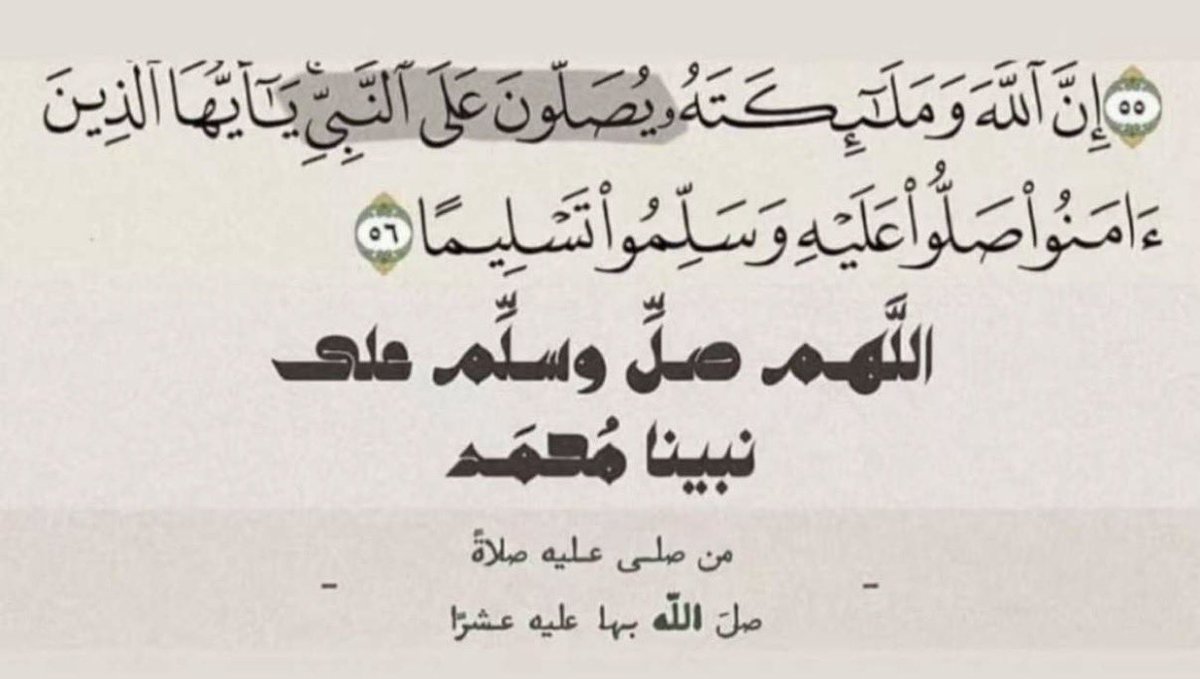 ٥٥ إِنَّ ٱللَّهَ وَمَلَـٰٓئِكَتَهُۥ يُصَلُّونَ عَلَى ٱلنَّبِىِّ ۚ يَـٰٓأَيُّهَا ٱلَّذِينَ
ءَامَنُوا۟ صَلُّوا۟ عَلَيْهِ وَسَلِّمُوا۟ تَسْلِيمًا ٥٦
اللَّهم صلِّ وسلِّم على
نبينا مُحمَد
من صلى عليه صلاةً
صلَ الله بها عليه عشرًا